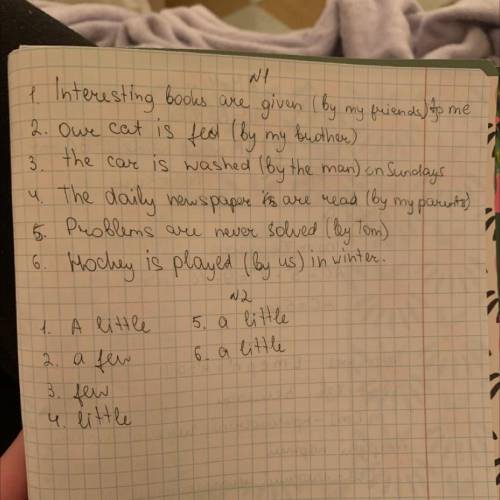 N1
1. Interesting books are given (by my friends) to me
2. Our cat is fed (by my brother)
3. the car is washed (by the man) on Sundays
4. The daily newspaper is are read (by my parents)
5. Problems are never solved (by Tom)
6. Hockey is played (by us) in winter.
N2
1. A little 5. a little
2. a few 6. a little
3. few
4. little